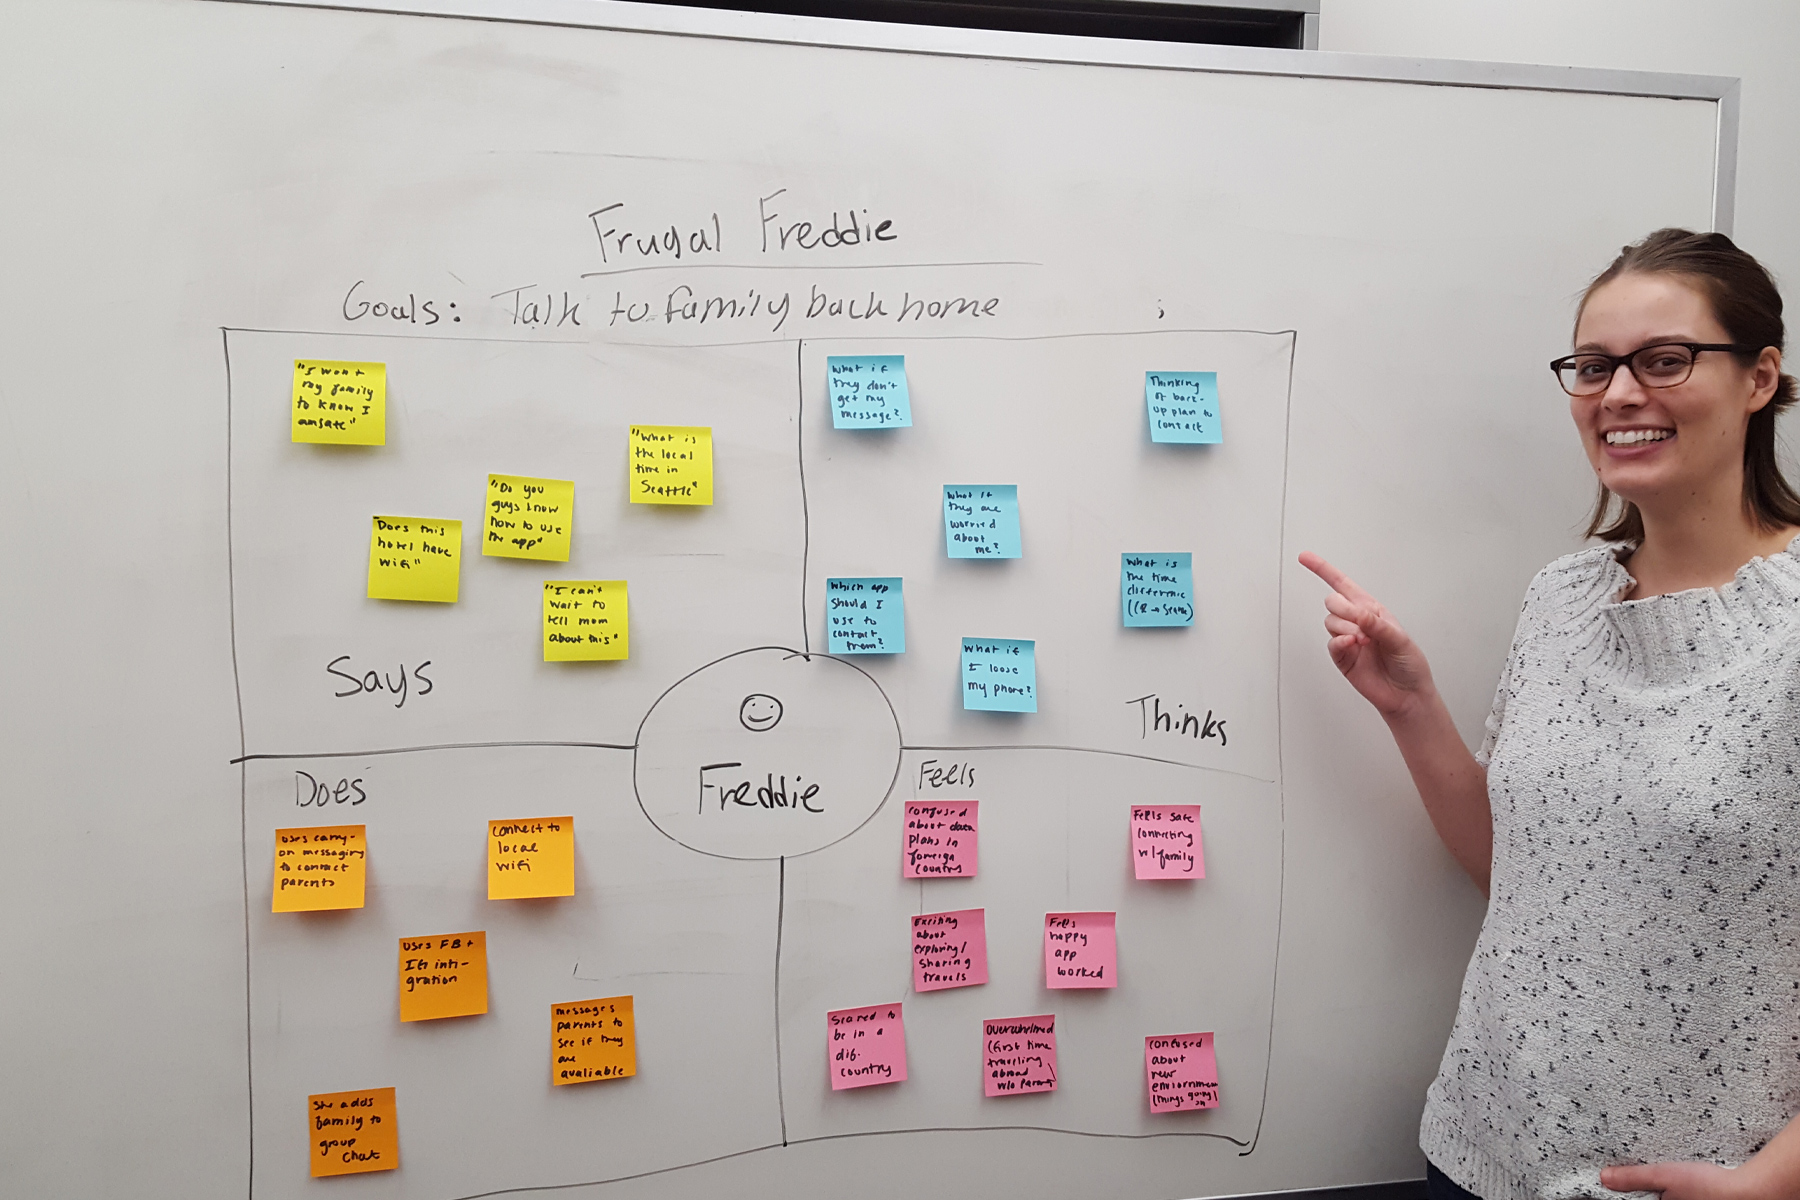 Frugal Freddie
Goals: Talk to family back home ;
"I want
my family
to know I
am safe"
"What is
the local
time in
Seattle"
"Do you
guys know
how to use
the app"
"Does this
hotel have
wifi"
"I can't
wait to
tell mom
about this"
Says
What if
they don't
get my
message?
Thinking
of back-
up plan to
contact
What if
they are
worried
about
me?
What is
the time
difference
Which app
should I
use to
contact
them?
What if
I loose
my phone?
Thinks
Freddie
Does
Uses carry-
on messaging
to contact
parents
Connect to
local
wifi
Uses FB +
IG inti-
gration
messages
parents to
see if they
are
avaliable
She adds
family to
group
chat
Feels
Confused
about data
plans in
foreign
country
Feels safe
connecting
w/family
Exciting
about
exploring/
sharing
travels
Feels
happy
app
worked
Scared to
be in a
dif.
country
Overwhelmed
(first time
traveling
abroad
w/o parents)
Confused
about
new
enviornment
(things going
on)